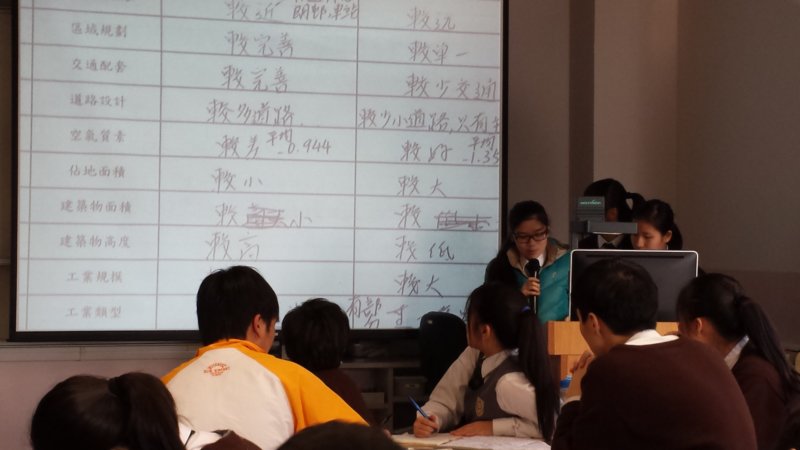 較近 朗邨,車站 較远
區域規劃 較完善 較單一
交通配套 較完善 較少交通
道路設計 較多道路 較少小道路,只有
空氣質素 較差 平均 -0.944 較好 平均 -1.35
佔地面積 較小 較大
建築物面積 較 小 較
建築物高度 較高 較低
工業規模 較大
工業類型 有部